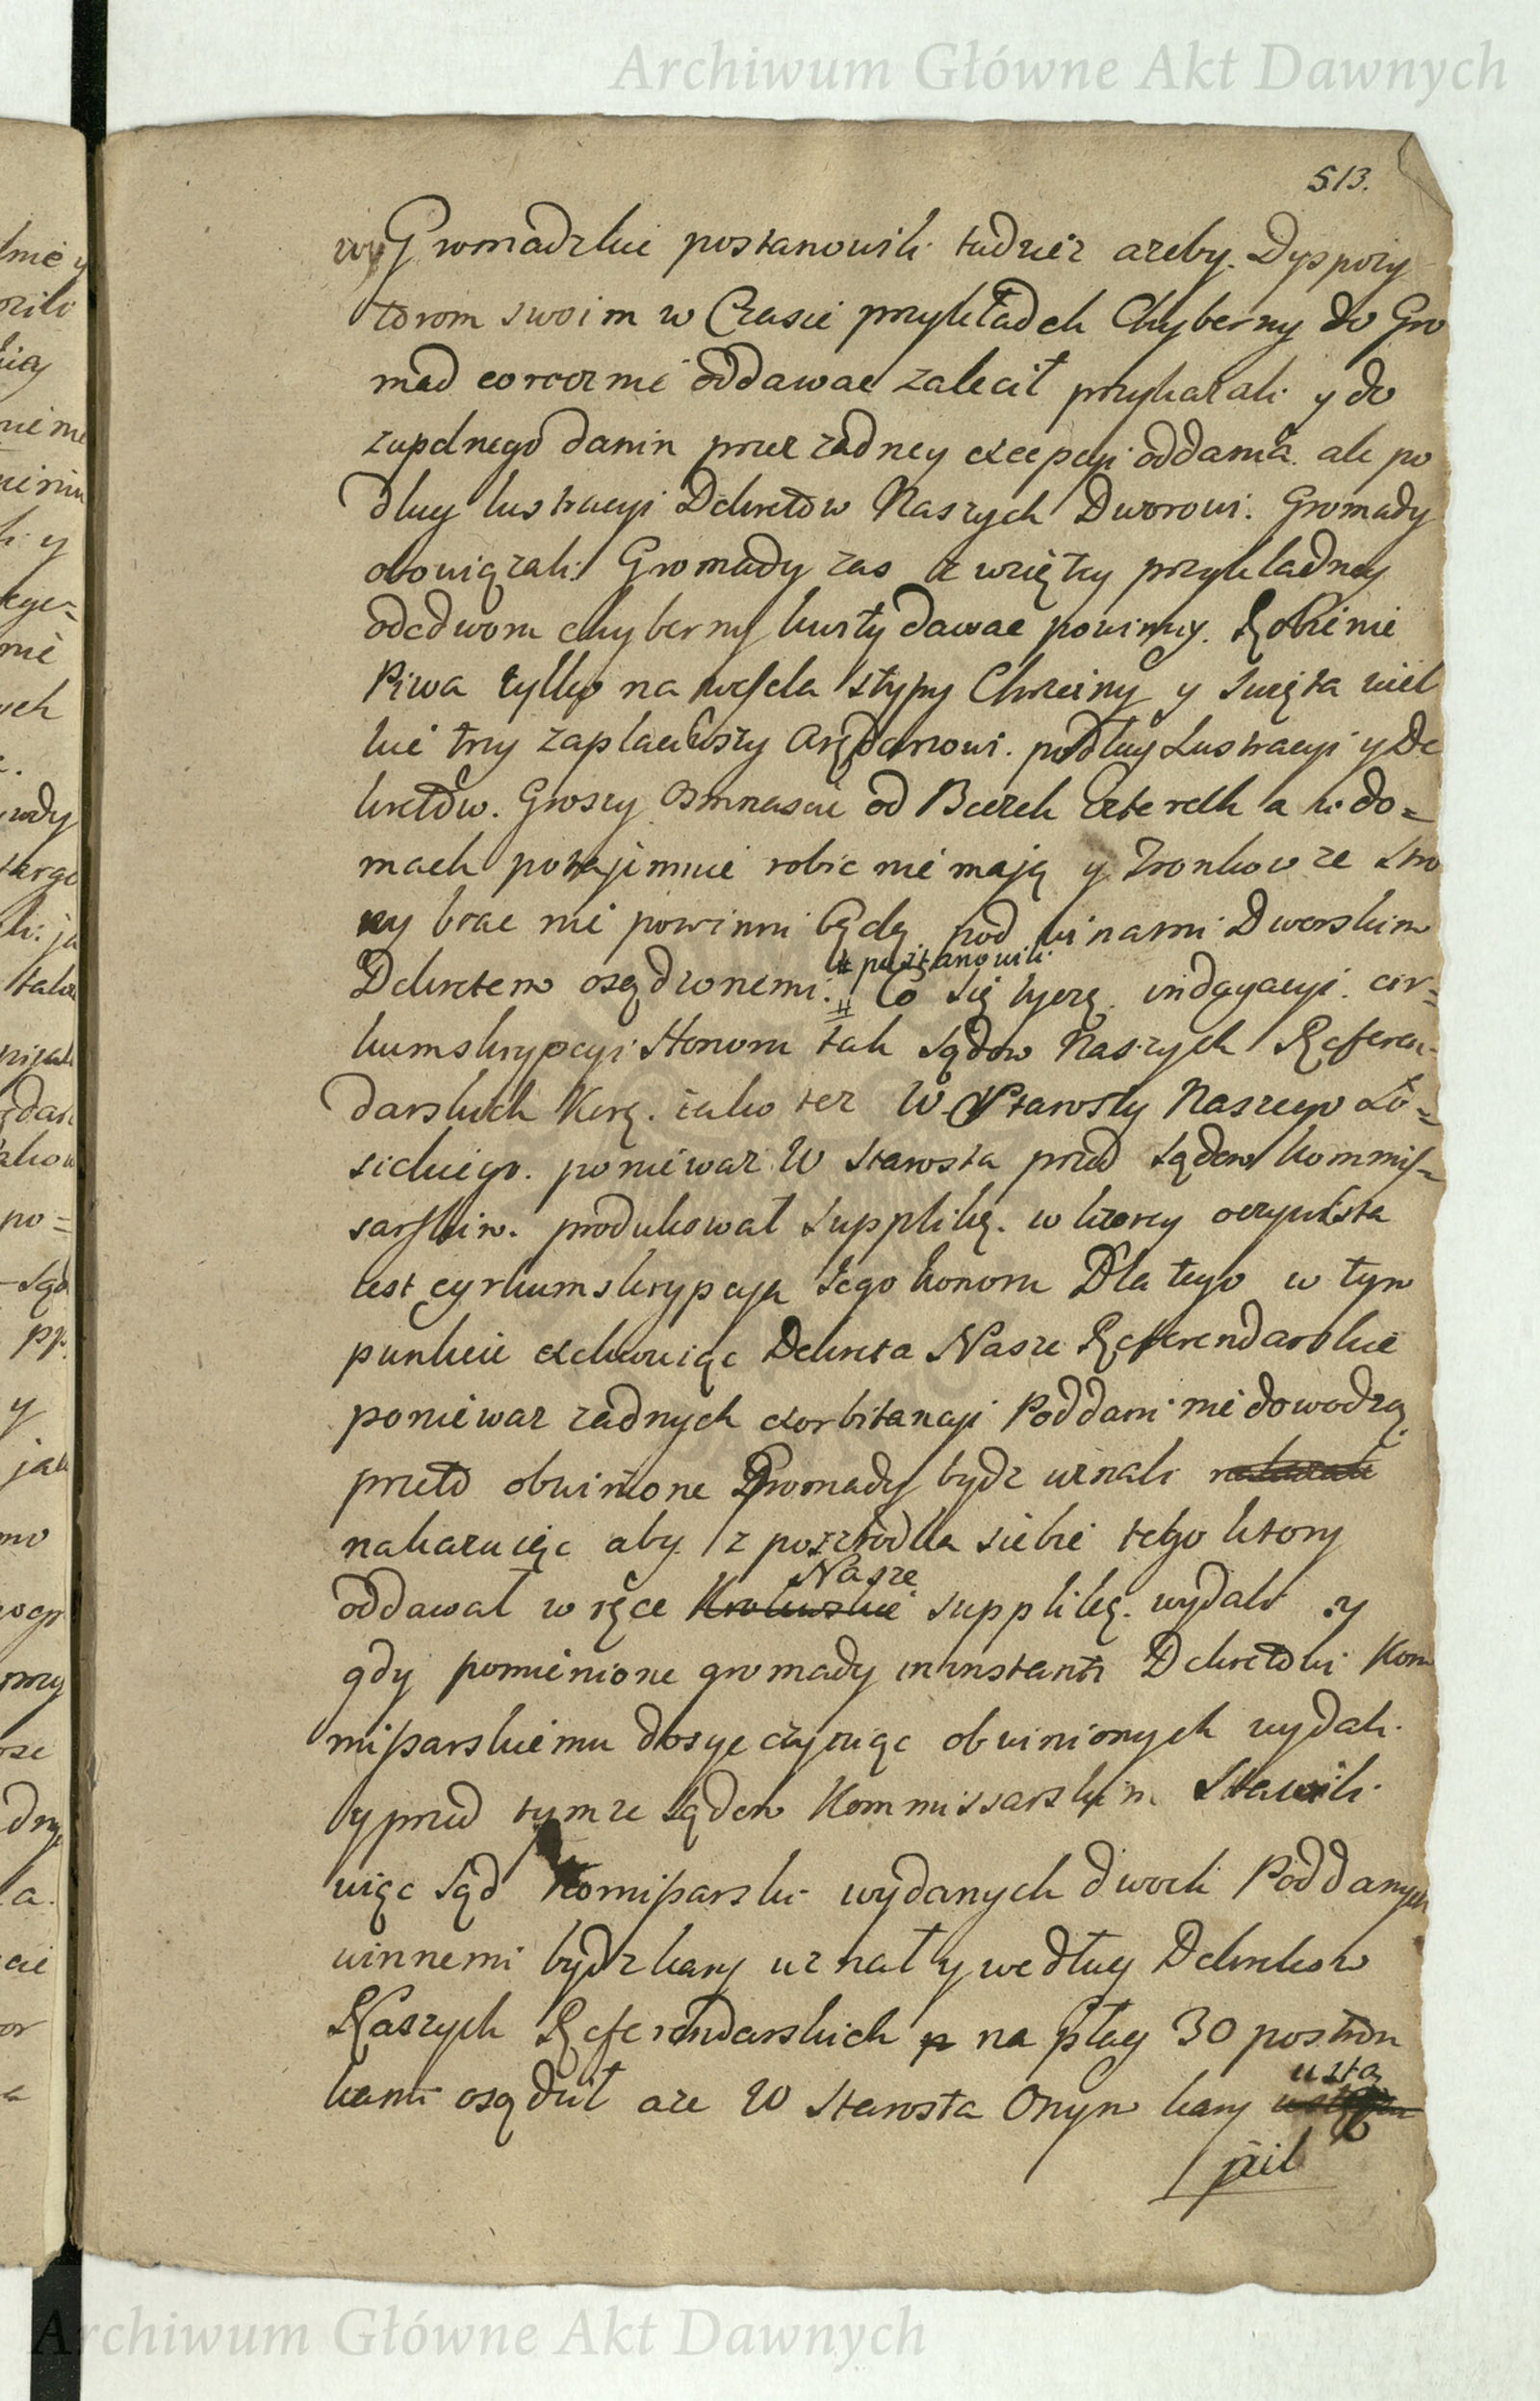 Archiwum Główne Akt Dawnych
513.
wy Gromadzkie postanowili tudziez azeby Dyspozy
torom swoim w Czasie przykładek Chyberny do Gro
mad corocznie oddawac zalecił przykazali y do
zupelnego danin przez zadney excepcyi oddania ale po
dług lustracyi Dekretow Naszych Dworowi. Gromady
obowiązali Gromady zas z wziętey przykladney
odedwora chyberny kwity dawac powinny. Robienie
Piwa tylko na wesela stypy Chrzciny y Swięta wiel
kie trzy zaplaciwszy Arędarzowi. podług Lustracyi y De
kretow. Groszy Osmnascie od Beczek czterech a w do=
mach potajemnie robic nie maią y Tronkow ze Stro
ny brac nie powinni będą pod winami Dworskim
# postanowili
Dekretem osądzonemi. # Co się tycze indagacyi. cyr=
kumskrypcyi Honoru tak Sądow Naszych Referen-
darskich Kor. iako tez W. Starosty Naszego Ło=
sickiego. poniewaz W Starosta przed Sądem Kommis=
sarskim. produkowal Supplikę. w ktorey oczywista
iest cyrkumskrypcya Jego honoru Dla tego w tym
punkcie exekwuiąc Dekreta Nasze Referendarskie
poniewaz zadnych exorbitancyi Poddani nie dowodzą
przeto obwinione Gromady bydz uznali
nakazuiąc aby z poszrodka siebie tego ktory
Nasze
oddawał w ręce Krolewskie supplikę. wydali y
gdy pomienione gromady in instanti Dekretowi Kom
missarskiemu dosyc czyniąc obwinionych wydali.
y przed tymze Sądem Kommissarskim Stawili.
więc Sąd Komissarski wydanych dwoch Poddanych
winnemi bydz kary uznal y według Dekretow
Naszych Referendarskich na plag 30 postron
kami osądził aze W Starosta Onym kary
ustą
pił
Archiwum Główne Akt Dawnych